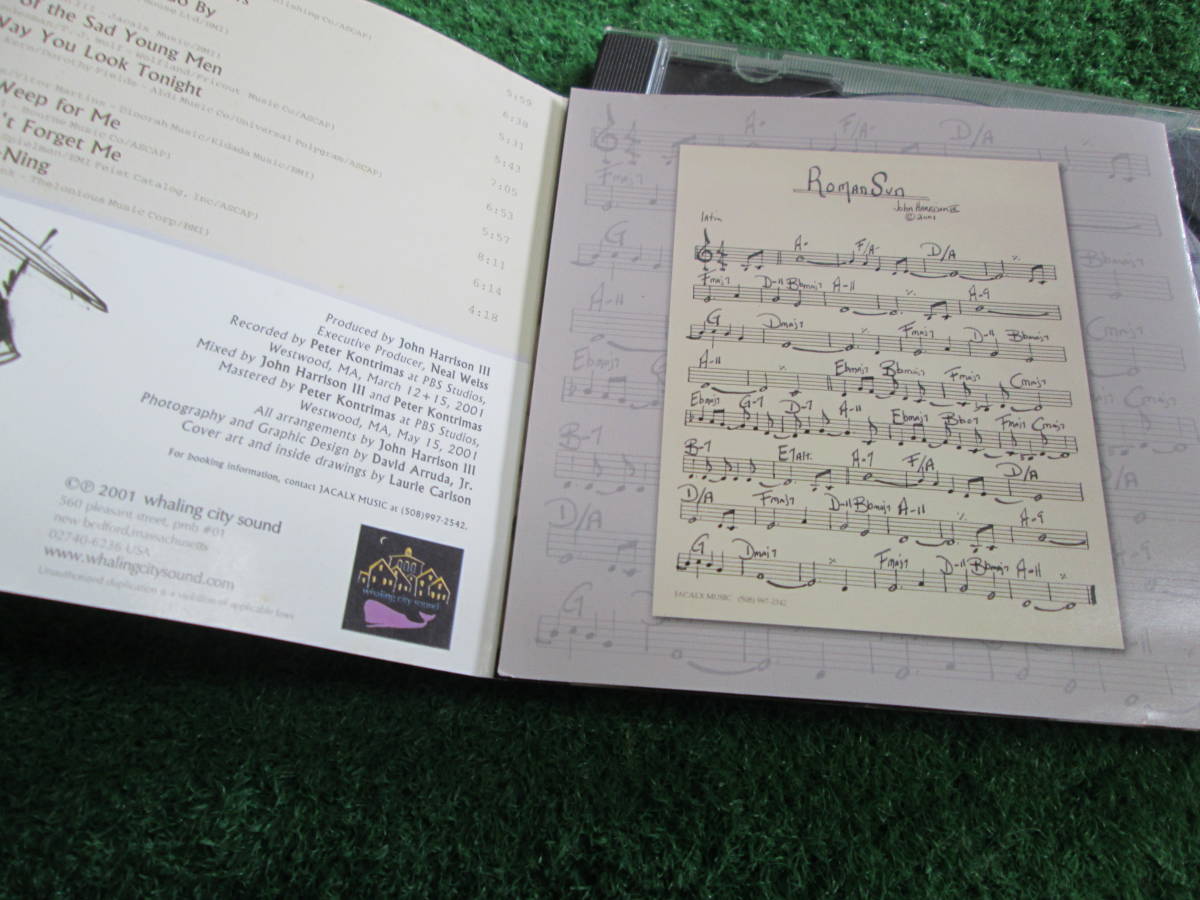 o By
of the Sad Young Men
Way You Look Tonight
Weep for Me
't Forget Me
-Ning
- Thelonious Music Corp/BMI)
5:59
6:38
5:31
5:43
7:05
6:53
5:57
8:11
6:14
4:18
Produced by John Harrison III
Executive Producer, Neal Weiss
Recorded by Peter Kontrimas at PBS Studios,
Westwood, MA, March 12+15, 2001
Mixed by John Harrison III and Peter Kontrimas
Mastered by Peter Kontrimas at PBS Studios,
Westwood, MA, May 15, 2001
All arrangements by John Harrison III
Photography and Graphic Design by David Arruda, Jr.
Cover art and inside drawings by Laurie Carlson
For booking information, contact JACALX MUSIC at (508)997-2542.
©℗ 2001 whaling city sound
560 pleasant street, pmb #01
new bedford, massachusetts
02740-6236 USA
www.whalingcitysound.com
Unauthorized duplication is a violation of applicable laws
whaling city sound
Roman Sun
John Harrison III
©2001
latin
A- F/A- D/A
Fmaj7 D-11 Bbmaj7 A-11 A-9
G Dmaj7 Fmaj7 D-11 Bbmaj7
A-11 Ebmaj7 Bbmaj7 Fmaj7 Cmaj7
Ebmaj7 G-7 D-7 A-11 Ebmaj7 Fmaj7 Cmaj7
B-7 E7Alt. A-7 F/A D/A
D/A Fmaj7 D-11 Bbmaj7 A-11 A-9
G Dmaj7 Fmaj7 D-11 Bbmaj7 A-11
JACALX MUSIC (508) 997-2542